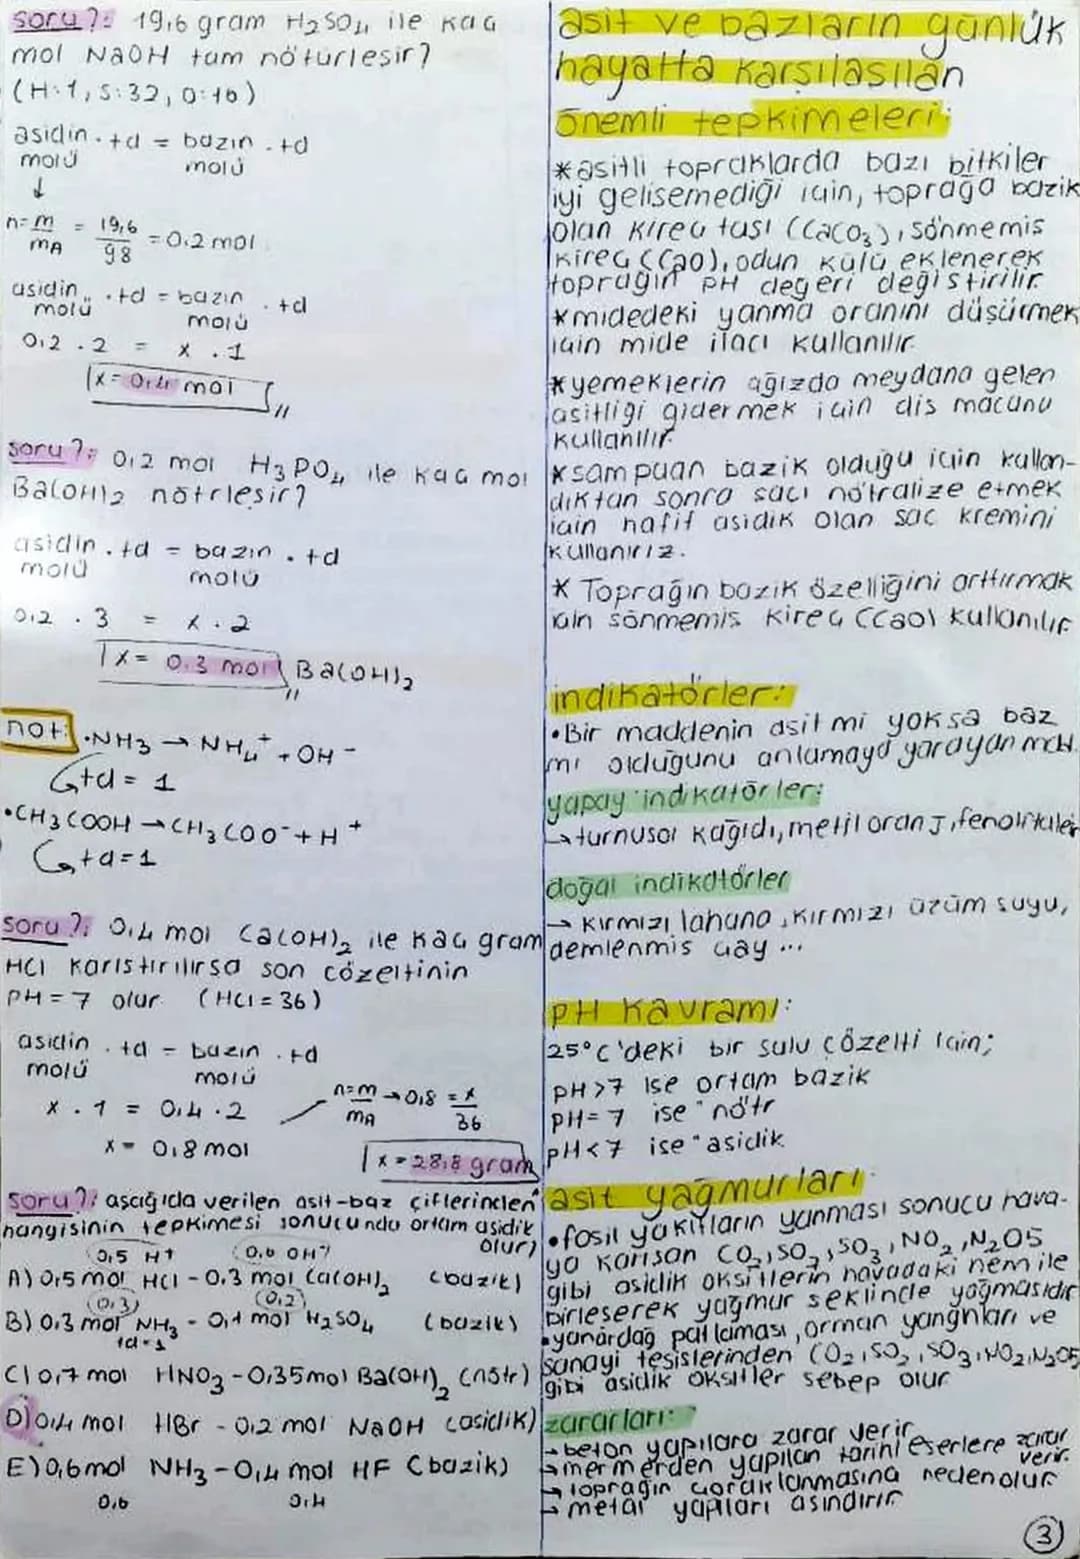 soru?: 19,6 gram H₂SO₄ ile kaç
mol NaOH tam nötürleşir?
(H:1, S:32, O:16)
asidin molü . td = bazın molü . td
n=m/mA = 19,6/98 = 0.2 mol
asidin molü . td = bazın molü . td
0,2 . 2 = x . 1
x = 0,4 mol
soru?: 0,2 mol H₃PO₄ ile kaç mol
Ba(OH)₂ nötrleşir?
asidin molü . td = bazın molü . td
0,2 . 3 = x . 2
x = 0.3 mol Ba(OH)₂
not: •NH₃ → NH₄⁺ + OH⁻
td = 1
•CH₃COOH → CH₃COO⁻ + H⁺
td=1
soru?: 0,4 mol Ca(OH)₂ ile kaç gram
HCl karıştırılırsa son çözeltinin
PH = 7 olur (HCl = 36)
asidin molü . td = bazın molü . td
x . 1 = 0,4 . 2
x = 0,8 mol
n=m/mA → 0,8 = x/36
x = 28,8 gram
soru?: aşçağıda verilen asit-baz çiflerinden
hangisinin tepkimesi sonucunda ortam asidik
olur?
0,5 H+ 0,6 OH?
A) 0,5 mol HCl - 0.3 mol Ca(OH)₂ (bazik)
(0,3) (0,2)
B) 0,3 mol NH₃ - 0,1 mol H₂SO₄ (bazik)
td=1
C) 0,7 mol HNO₃ - 0,35 mol Ba(OH)₂ (nötr)
D) 0,4 mol HBr - 0,2 mol NaOH (asidik)
E) 0,6 mol NH₃ - 0,4 mol HF (bazik)
0,6 0,4
asit ve bazların günlük
hayatta karşılaşılan
önemli tepkimeleri:
*asitli topraklarda bazı bitkiler
iyi gelişemediği için, toprağa bazik
olan kireç taşı (CaCO₃), sönmemiş
kireç (CaO), odun külü eklenerek
toprağın PH değeri değiştirilir.
*midedeki yanma oranını düşürmek
için mide ilacı kullanılır
*yemeklerin ağızda meydana gelen
asitliği gidermek için diş macunu
kullanılır
*şampuan bazik olduğu için kullan-
dıktan sonra saçı nötralize etmek
için hafif asidik olan saç kremini
kullanırız.
* Toprağın bazik özelliğini arttırmak
için sönmemiş kireç (CaO) kullanılır
indikatörler:
•Bir maddenin asit mi yoksa baz
mı olduğunu anlamaya yarayan mad.
yapay indikatörler:
→turnusol kağıdı, metil oranj, fenolftalein
doğal indikatörler
→ kırmızı lahana, kırmızı üzüm suyu,
demlenmiş çay ...
PH kavramı:
25°C'deki bir sulu çözelti için;
PH>7 ise ortam bazik
PH=7 ise " nötr
PH<7 ise " asidik
asit yağmurları:
•fosil yakıtların yanması sonucu hava-
ya karışan CO₂, SO₂, SO₃, NO₂, N₂O5
gibi asidik oksitlerin havadaki nem ile
birleşerek yağmur şeklinde yağmasıdır
•yanardağ patlaması, orman yangınları ve
sanayi tesislerinden CO₂, SO₂, SO₃, NO₂, N₂O5
gibi asidik oksitler sebep olur
zararları:
→beton yapılara zarar verir
→mermerden yapılan tarihi eserlere zarar verir.
→toprağın çoraklanmasına neden olur
→metal yapıları aşındırır
3